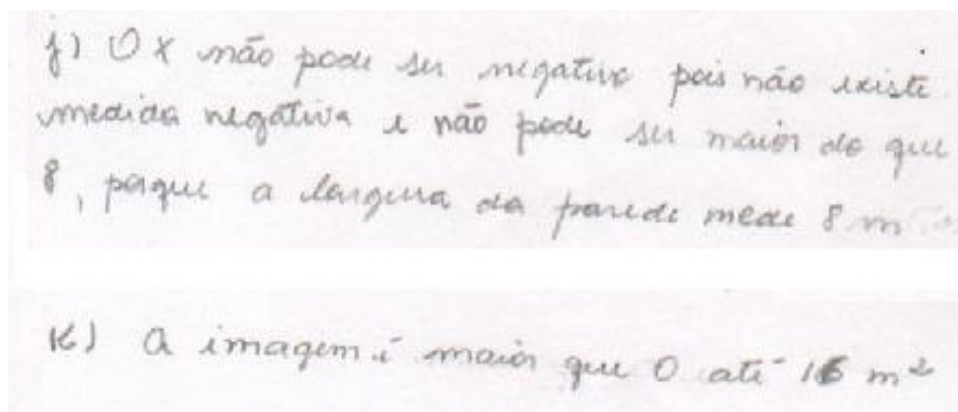 j) O x não pode ser negativo pois não existe
medida negativa e não pode ser maior do que
8, porque a largura da parede mede 8 m
K) A imagem é maior que 0 até 16 m²